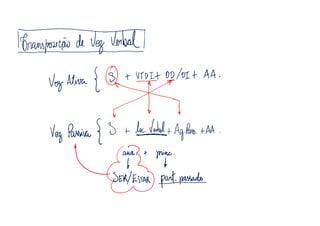 Transposição de Voz Verbal
Voz Ativa { S + VTDI + OD/OI + AA.
Voz Passiva { S + loc. Verbal + Ag. Pass. + AA.
aux. + princ.
SER/ESTAR part. passado